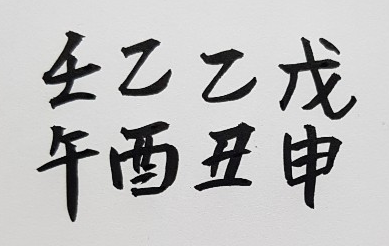 壬乙乙戊
午酉丑申